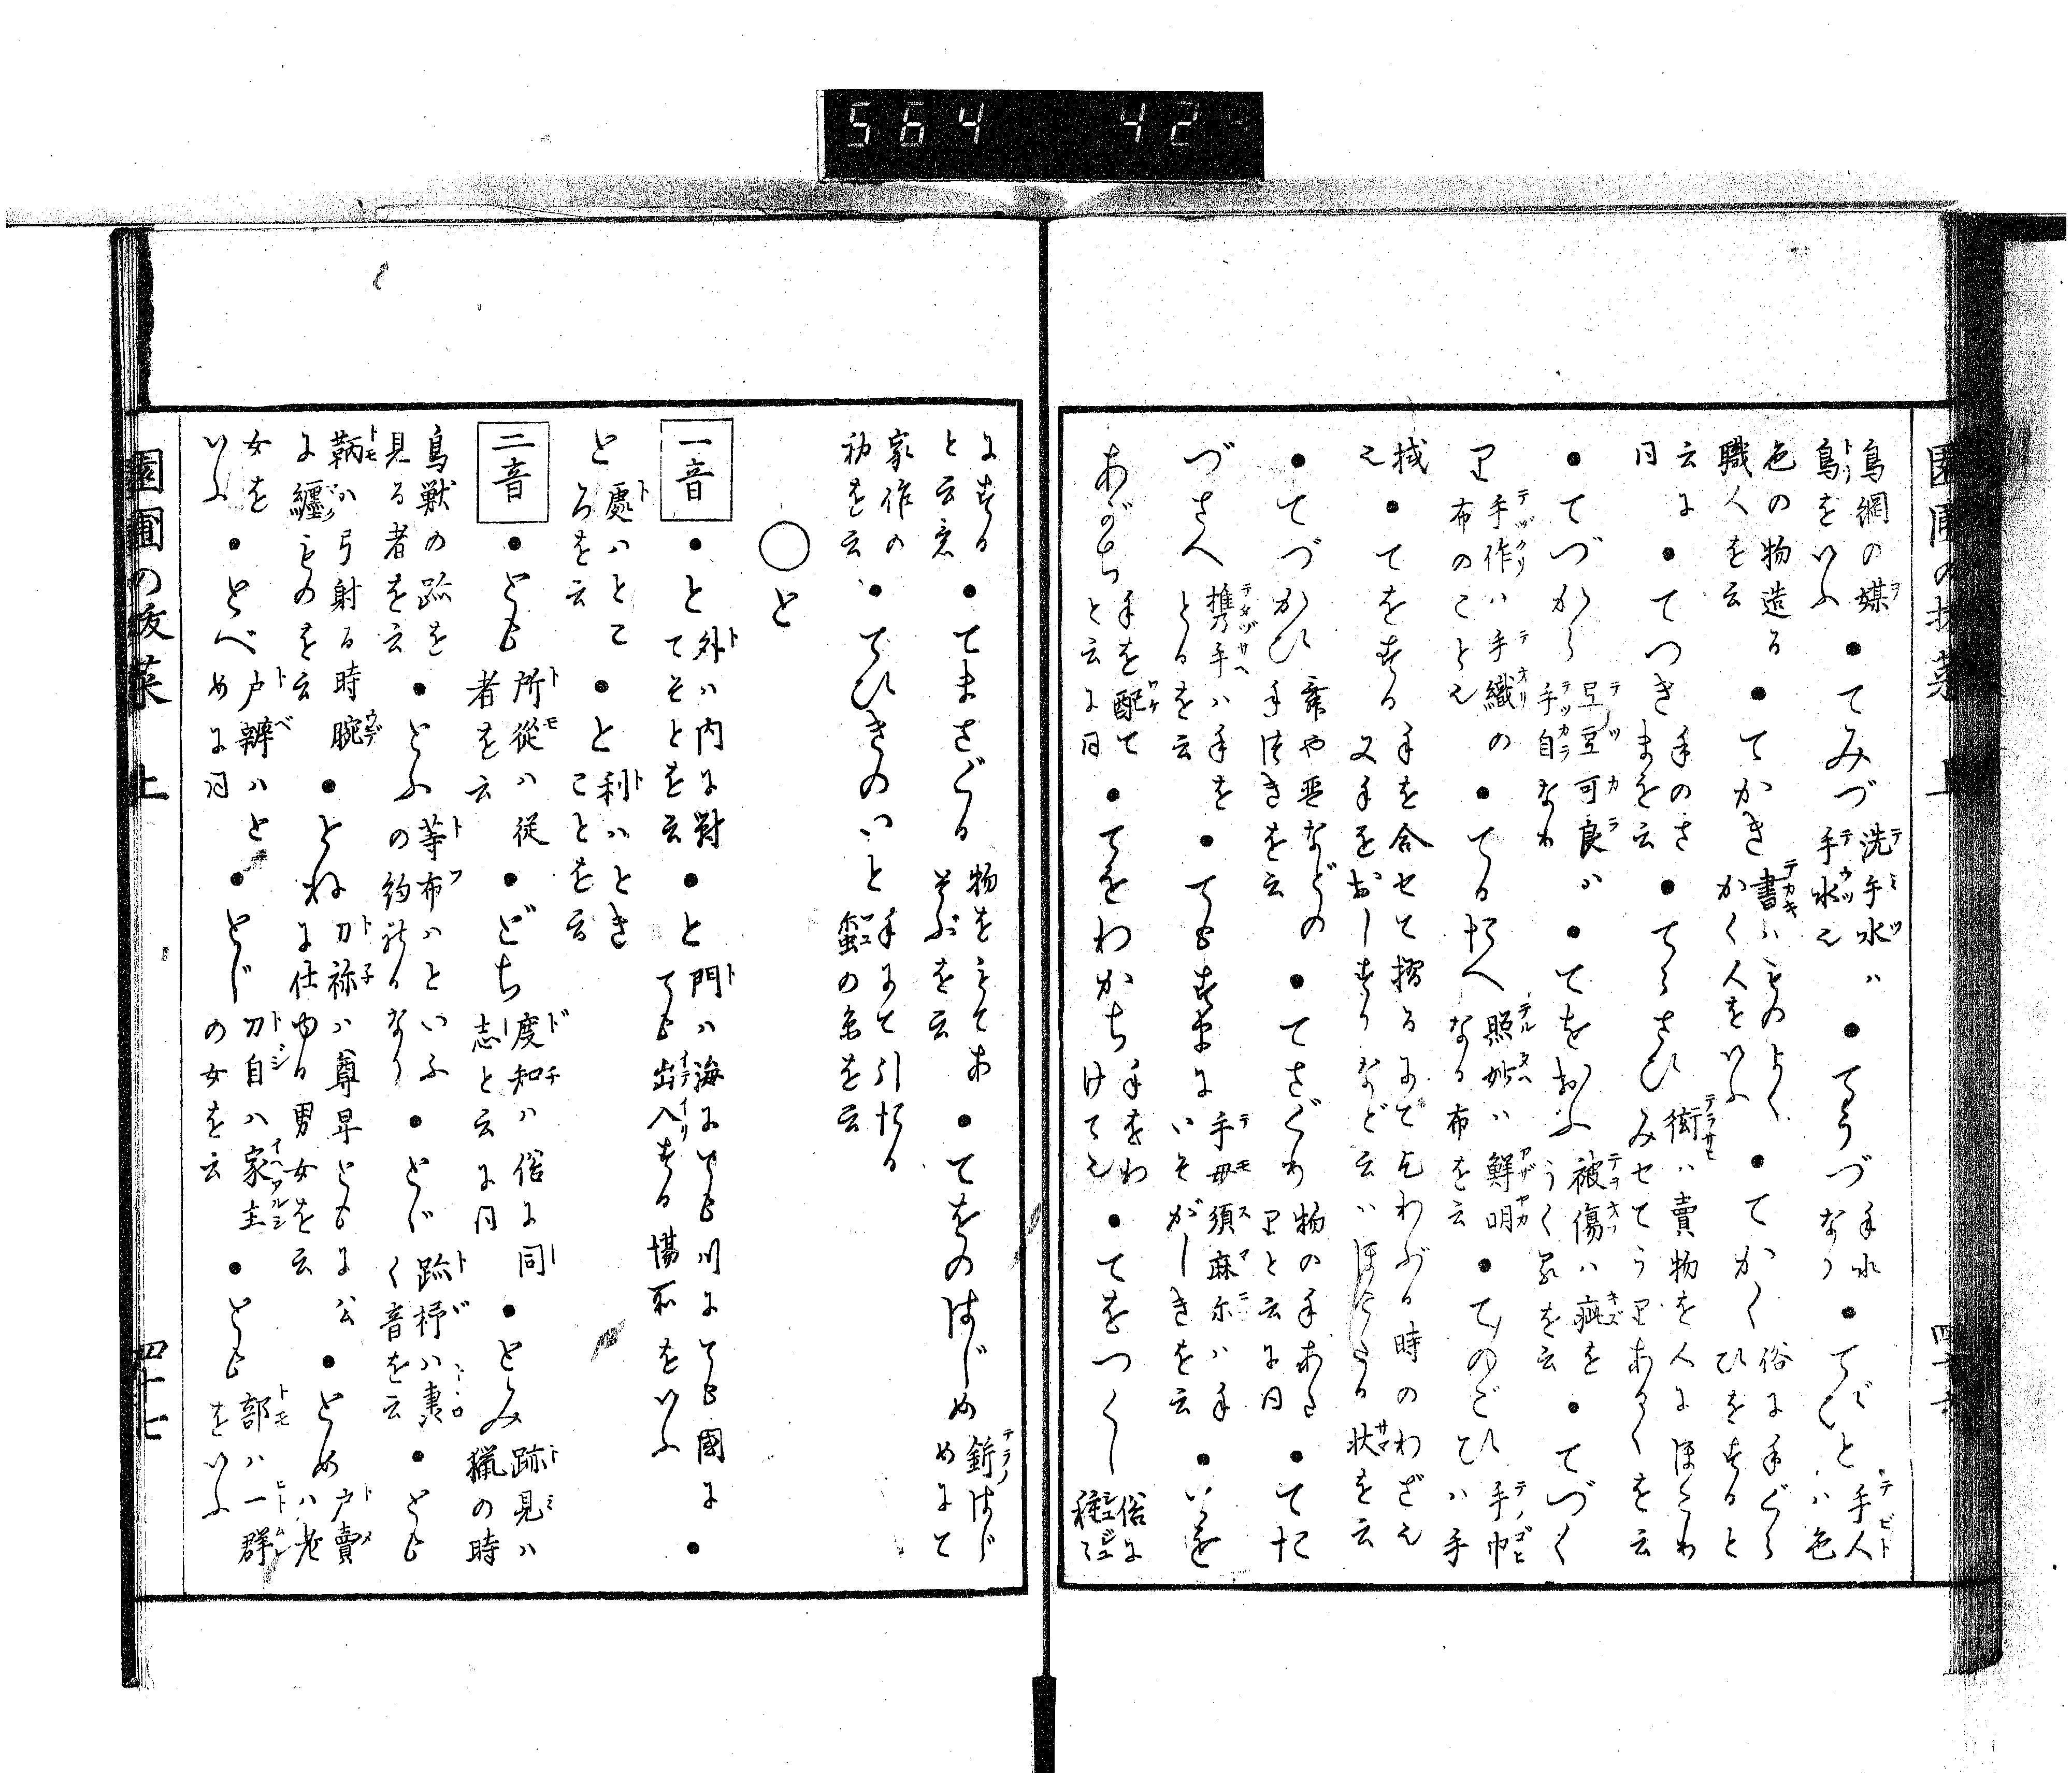 564 42
鳥網の媒
鳥をいふ
●てみづ
洗手水ハ
手水也
●てうづ
手水
なり
●てびと
手人
ハ色
色の物造る
職人を云
●てかき
書ハものよく
かく人をいふ
●てかく
俗に手ぐら
ひをすると
云に
同
●てつき
手のさ
まを云
●てらさひ
衒ハ賣物を人にほこり
みせてうりあるくを云
●てづから
手自なり
●てをおふ
被傷ハ疵を
うく るを云
●てづく
り
手作ハ手織の
布のこと也
●てるたへ
照妙ハ鮮明
なる布を云
●てのごひ
手巾
ハ手
拭
也
●てをする
手を合せて摺るにて わぶる時のわざ也
又手をおしすりなど云ハ る状を云
●てづかひ
手つきを云
●てさぐり
物の手あた
りと云に同
●てた
づさへ
携手ハ手を
とるを云
●てもすまに
手母須麻尓ハ手
いそがしきを云
●いを
あがち
手を配て
と云に同
●てをわかち
手をわ
けて也
●てをつくし
俗に
種〻
にする
と云意
●てまさぐる
物をもてあ
そぶを云
●てをのはじめ
釿はじ
めにて
家作の
初を云
●てひきのいと
手にて引たる
蚕の糸を云
○と
一音
●と
外ハ内に對
てそとを云
●と
門ハ海にても川にても國に
ても出入する場所をいふ
●
と
處ハとこ
ろを云
●と
利ハとき
ことを云
二音
●とも
所從ハ従
者を云
●どち
度知ハ俗に同
志と云に同
●とみ
跡見ハ
獵の時
鳥獣の跡を
見る者を云
●とふ
等布ハといふ
の約れるなり
●とど
く音を云
●とも
鞆ハ弓射る時腕
に纏ものを云
●とね
刀祢ハ尊卑ともに公
に仕ゆる男女を云
●とめ
戸賣
ハ老
女を
いふ
●とべ
戸辨ハと
めに同
●とじ
刀自ハ家主
の女を云
●とも
部ハ一群
をいふ
園圃の抜菜 上
四十七